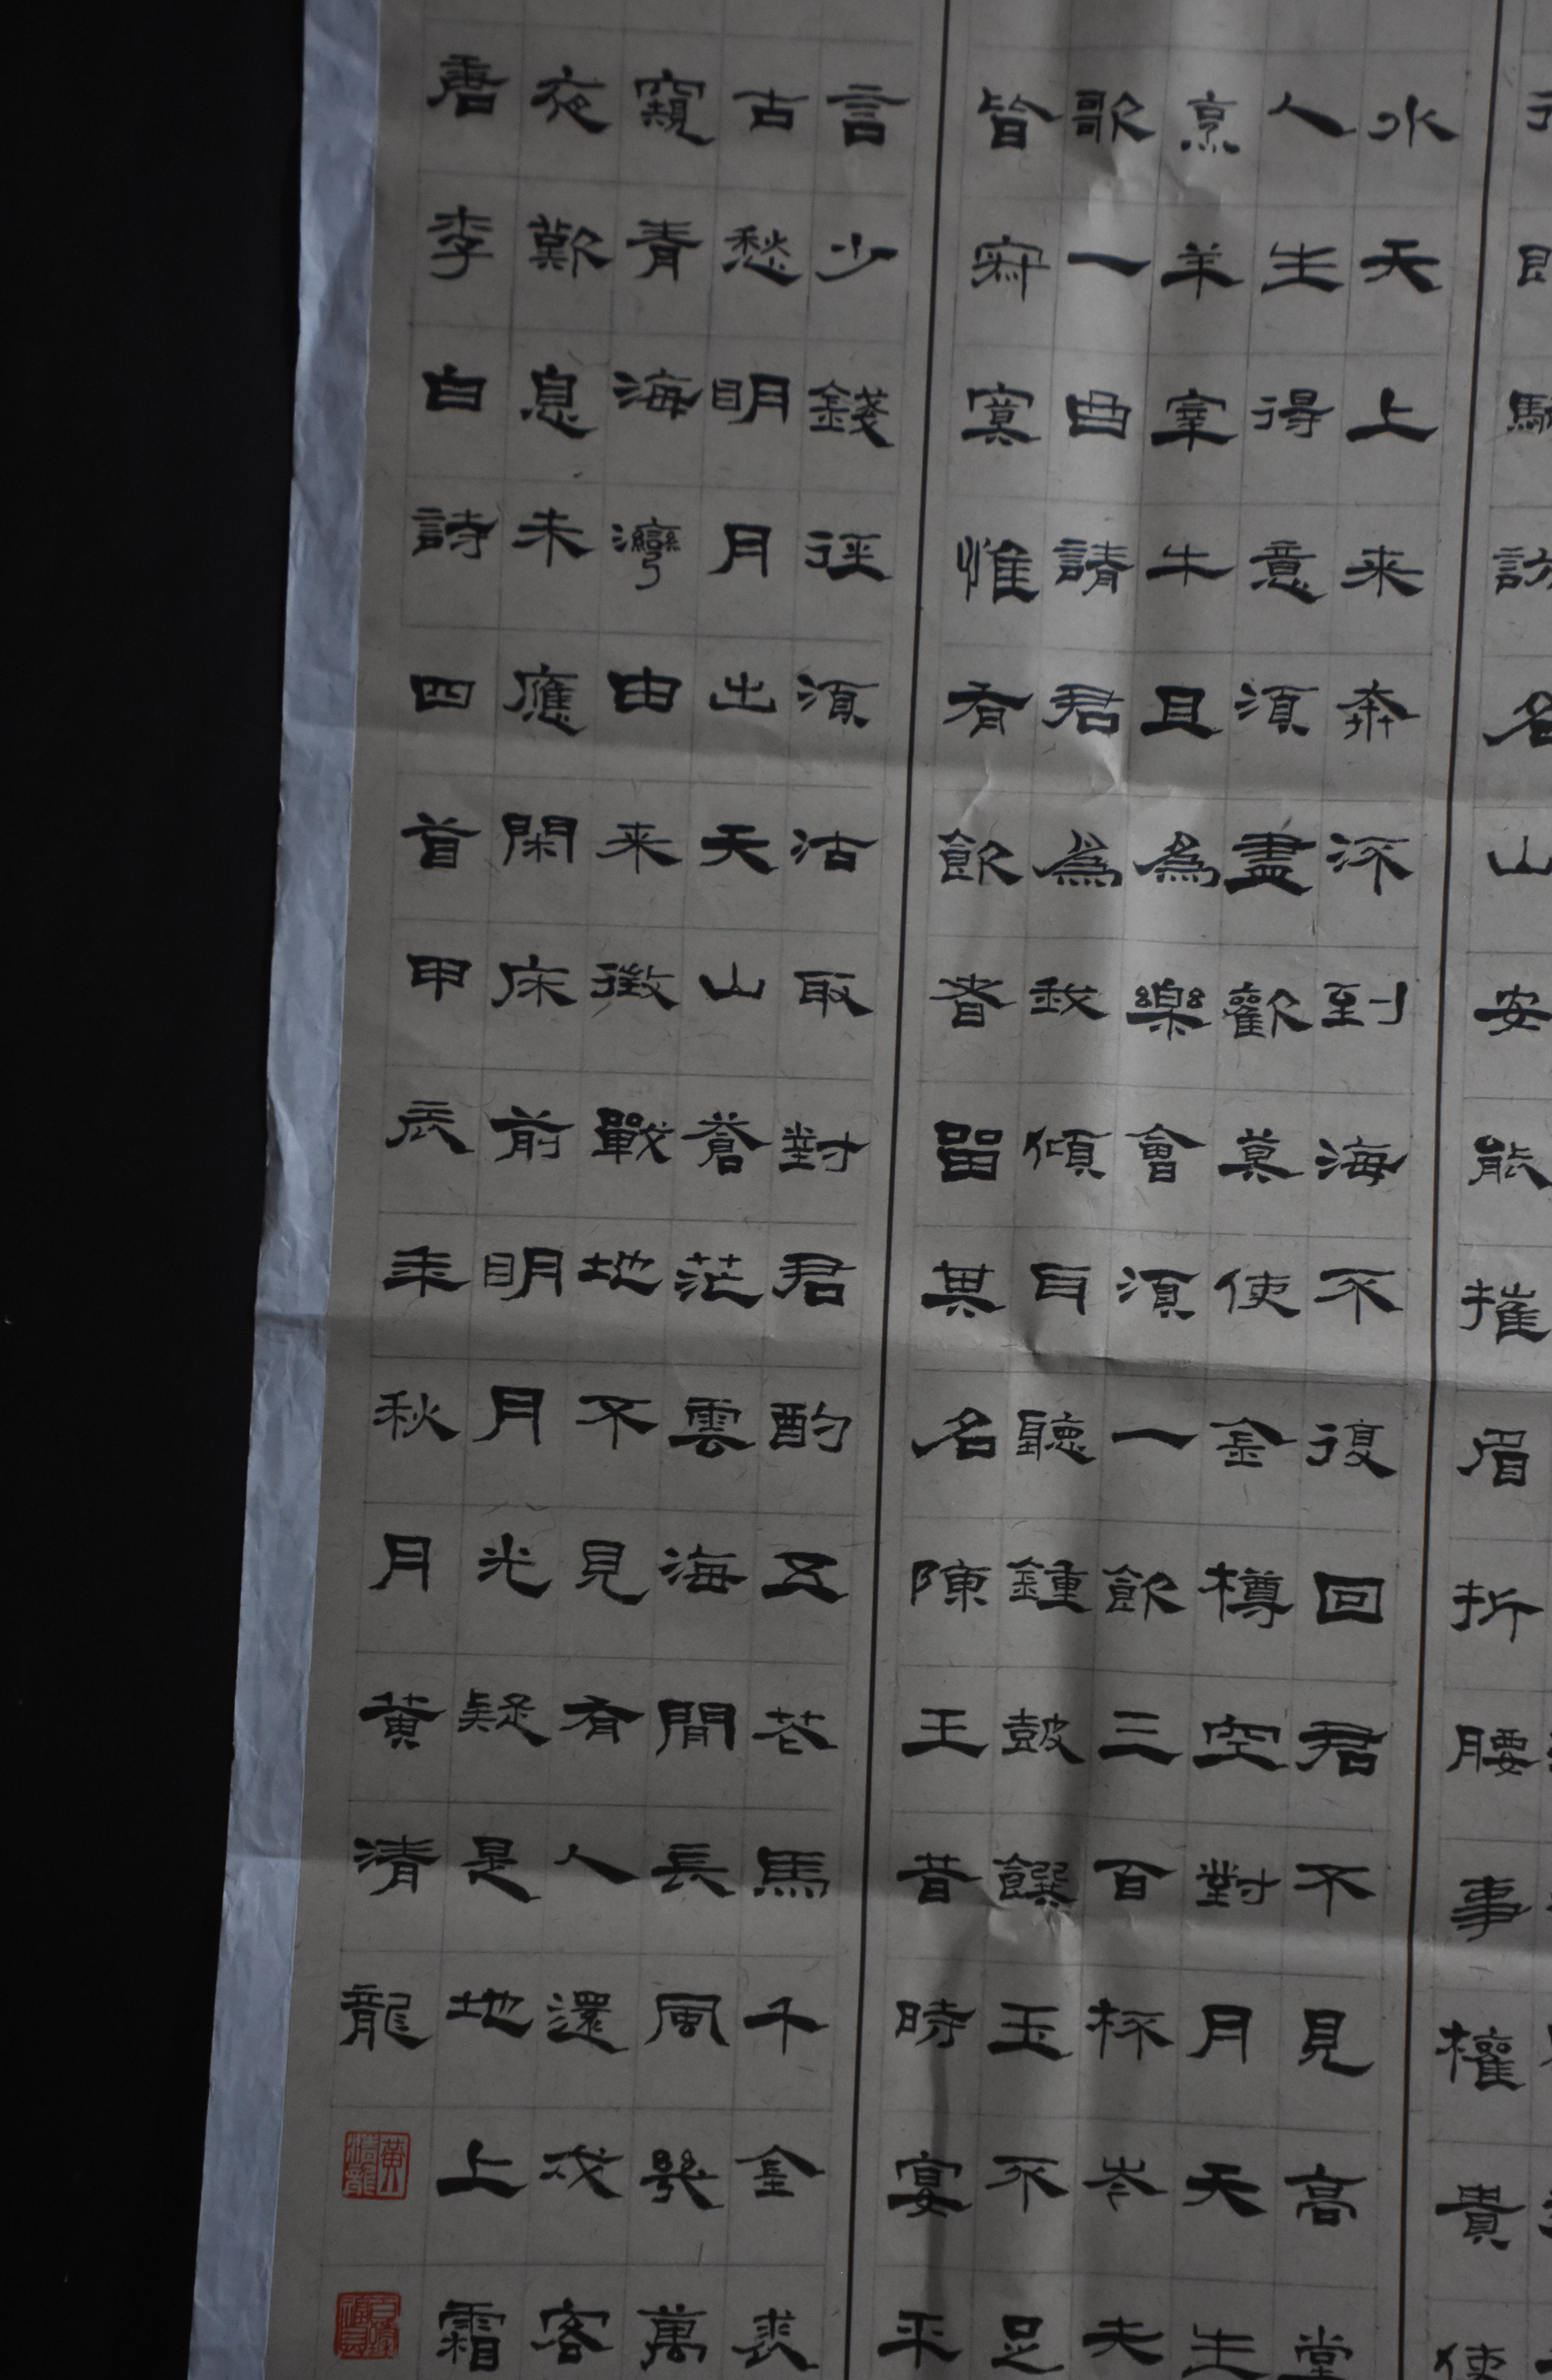 行即騎訪名山安能摧眉折腰事權貴使
水天上来奔流到海不復回君不見高堂
人生得意須盡歡莫使金樽空對月天生
烹羊宰牛且為樂會須一飲三百杯岑夫
歌一曲請君為我傾耳聽鍾鼓饌玉不足
皆寂寞惟有飲者留其名陳王昔時宴平
言少錢徑須沽取對君酌五花馬千金裘
古愁明月出天山蒼茫雲海間長風幾萬
窺青海灣由来徵戰地不見有人還戍客
夜歎息未應閑床前明月光疑是地上霜
唐李白詩四首甲辰年秋月黄清龍